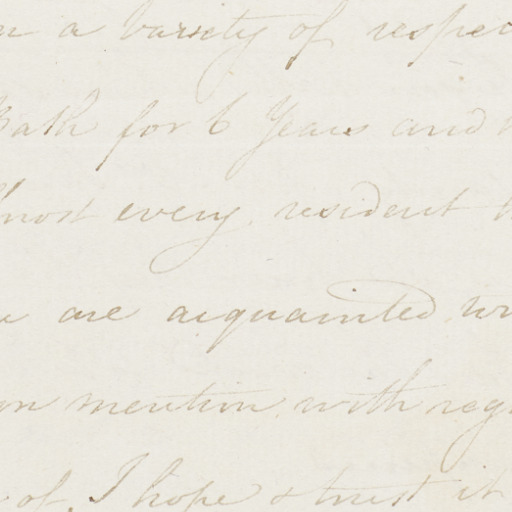 a variety of respec
Bath for 6 Years and
most every resident
are acquainted
mention with reg
of, I hope & trust it